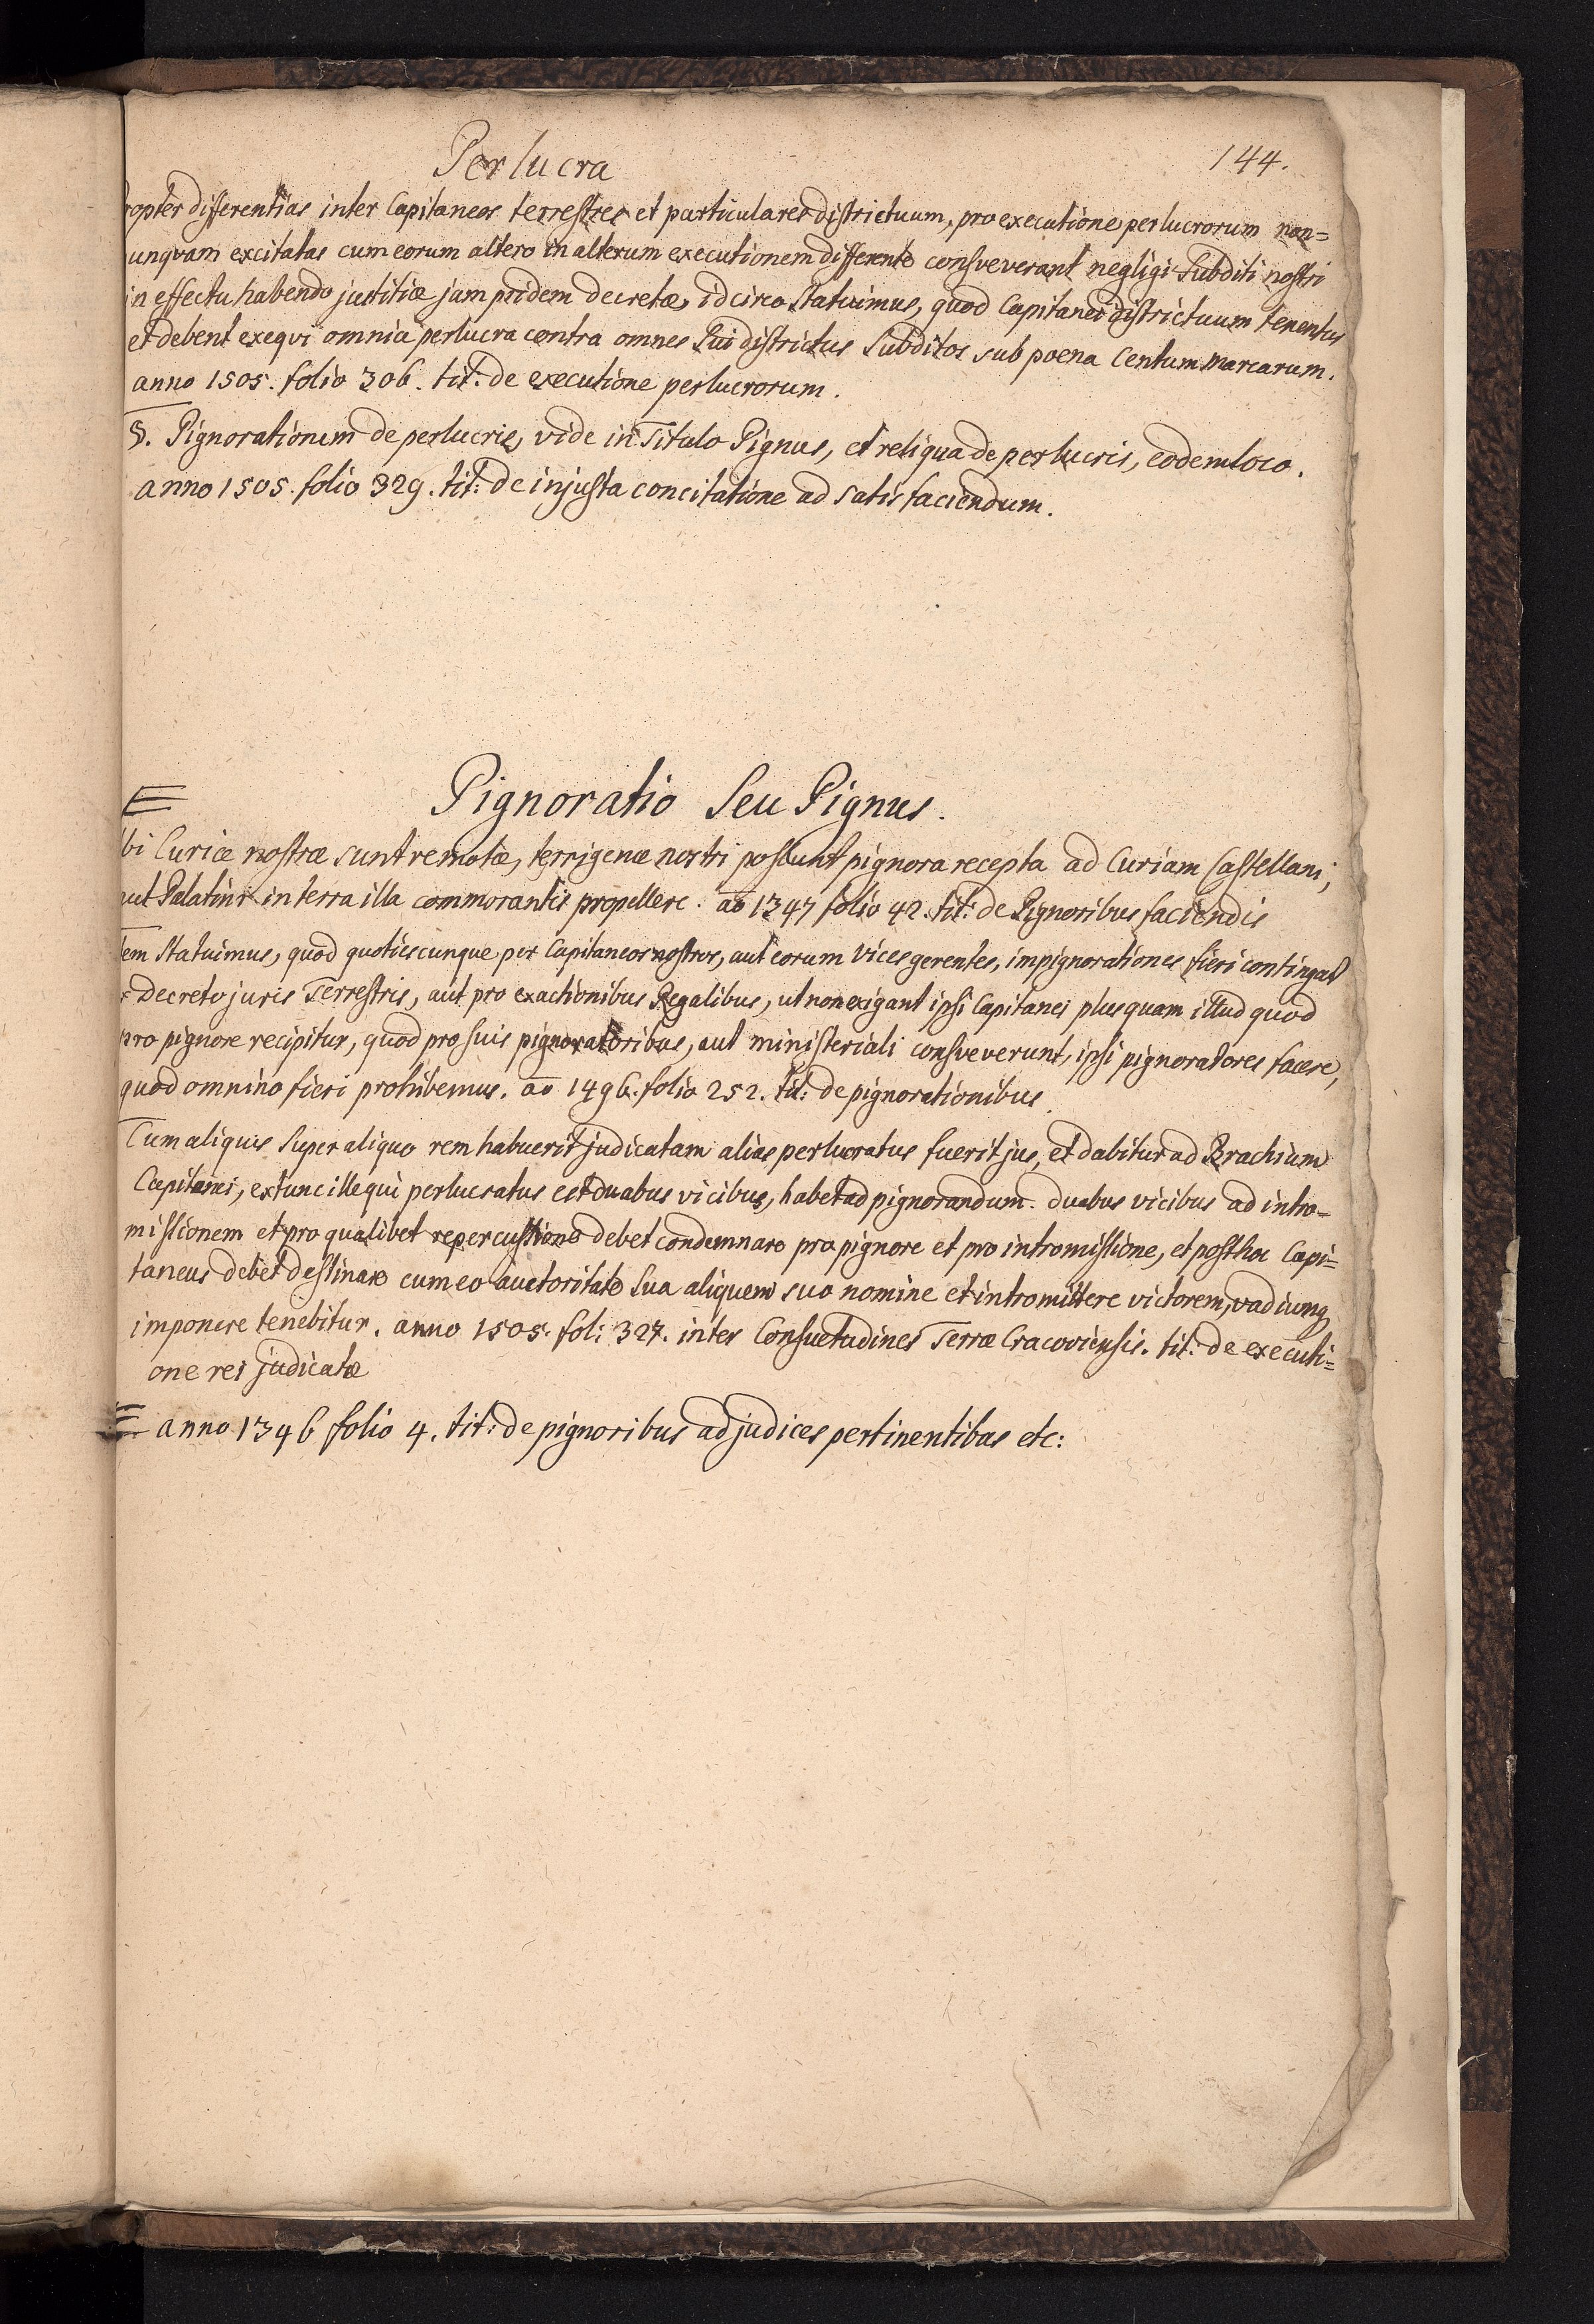 Perlucra
144.
ropter differentias inter Capitaneos terrestres et particulares districtuum, pro executione perlucrorum non=
unqvam excitatas cum eorum altero in alterum executionem differente consveverant negligi Subditi nostri
in effectu habendo justitiæ jam pridem decretæ, idcirco statuimus, quod Capitanei districtuum tenentur
et debent exeqvi omnia perlucra contra omnes Sui districtus Subditos sub poena Centum Marcarum.
anno 1505. folio 306. tit: de executione perlucrorum.
S. Pignorationem de perlucris, vide in Titulo Pignus, et reliqua de perlucris, eodem loco.
anno 1505. folio 329. tit: de injusta concitatione ad satisfaciendum.
Pignoratio Seu Pignus.
bi Curiæ nostræ sunt remotæ, terrigenæ nostri possunt pignora recepta ad Curiam Castellani,
aut Palatini in terra illa commorantis propellere. ao 1347 folio 42. tit: de Pignoribus faciendis
tem Statuimus, quod quotiescunque per Capitaneos nostros, aut eorum Vices gerentes, impignorationes fieri contingat
x decreto juris Terrestris, aut pro exactionibus Regalibus, ut non exigant ipsi Capitanei plus quam illud quod
pro pignore recipitur, quod pro suis pignoratoribus, aut ministeriali consveverunt, ipsi pignoratores facere,
quod omnino fieri prohibemus. ao 1496. folio 252. tit: de pignorationibus
Cum aliquis Super aliquo rem habuerit judicatam alias perlucratus fuerit jus, et dabitur ad Brachium
Capitanei, extunc ille qui perlucratus est duabus vicibus, habet ad pignorandum. duabus vicibus ad intro-
missionem et pro qualibet repercussione debet condemnare pro pignore et pro intromissione, et post hoc Capi=
taneus debet destinare cum eo auctoritate Sua aliquem suo nomine et intromittere victorem, vadiumq
imponere tenebitur. anno 1505. fol: 327. inter Consuetudines Terræ Cracoviensis. tit: de executi=
one rei judicatæ
anno 1346 folio 4. tit: de pignoribus ad judices pertinentibus etc: